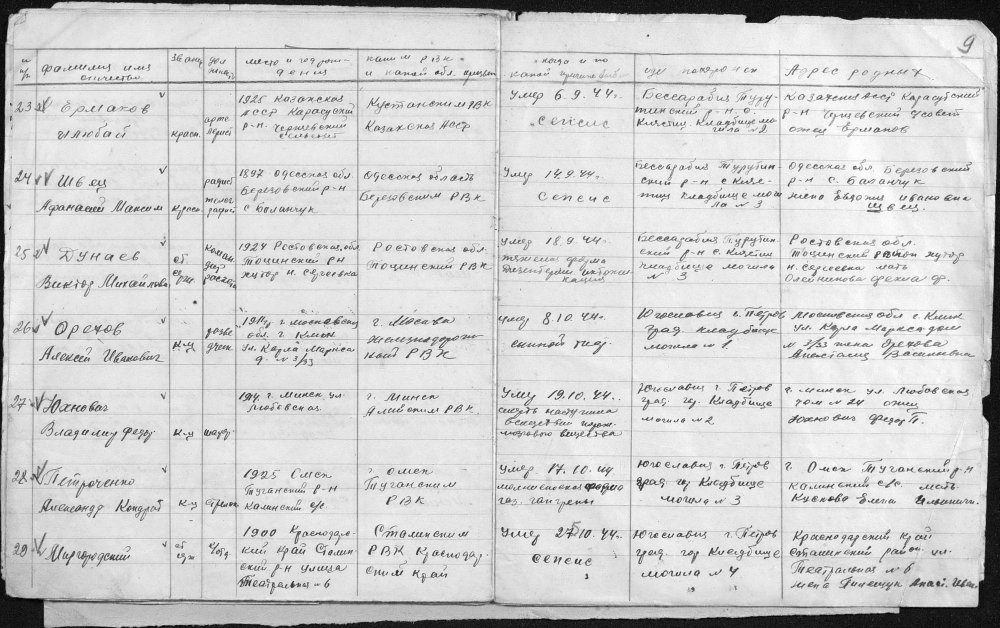 9
№ п/п фамилия имя отчество звание дол жность место и год рож- дения каким РВК и какой обл. призван когда и по какой причине выб. где похоронен Адрес родных
23 Ермахов
Илюбай
красн. арте лерист
1925 Казахская
АССР Карасуский
р-н. Черняевский
сельсовет
Кустанским РВК
Казахская АССР
Умер 6.9.44г.
Сепсис
Бессарабия Туру-
тинский р-н с.
Клястиц. Кладбище мо-
гила № 2.
Казахская АССР Карасубский
р-н Черняевский с/совет
отец Ермахов
24 Швец
Афанасий Максим
красн. радист телег рафист
1897 Одесская обл.
Березовский р-н
с Баланчук
Одесская область
Березовским РВК
Умер 14.9.44г.
Сепсис
Бессарабия Турутин-
ский р-н с Кляс-
тиц Кладбище мог
ла № 3
Одесская обл. Березовский
р-н с. Баланчук
жена Евдокия Ивановна
Швец.
25 Дунаев
Виктор Михайлов
ст серж. коман дир расчета
1924 Ростовская обл.
Тоцинский РН
хутор Н. Сергеевка
Ростовская обл.
Тоцинский РВК
Умер 18.9.44г.
тяжелая форма
дизентерии интокси
кация
Бессарабия Турутин-
ский р-н с. Клястиц
Кладбище могила
№ 3
Ростовская обл.
Тоцинский район хутор
Н-Сергеевка мать
Олейникова Фекла Ф.
26 Орехов
Алексей Иванович
к-ц разве дчик
г Московская
обл. г. Клин
ул. Карла Маркса
д. № 3/33
г. Москва
Железнодорож-
ный РВК
Умер 8.10.44г.
сыпной тиф.
Югославия г. Петров
град. Кладбище
могила № 1
Московская обл г. Клин
ул. Карла Маркса дом
№ 3/33 жена Орехова
Анастасия Васильевна
27 Юхнович
Владимир Федор
к-ц шофер
г. Минск ул
Любовская.
г. Минск
РВК.
Умер 19.10.44г.
смерть наступила
вследствии
мозгового вещества
Югославия г. Петров
град. гор. Кладбище
могила № 2
г. Минск ул. Любовская
дом № 24 отец
Юхнович Федор П.
28 Петроченко
Александр Кондрат
к-ц стрелок
1925 Омск
Туганский р-н
Калинский с/с
г. Омск
Туганским
РВК
Умер 17.10.44
молниеносная форма
газ. гангрены
Югославия г. Петров
град. гор. Кладбище
могила № 3
г. Омск Туганский р-н
Калинский с/с. мать
Кускова Елена Ильинич.
29 Миргородский
ст сдж
1900 Краснодарс-
кий край Сталин-
ский р-н улица
Театральная № 6
Сталинским
РВК Краснодар-
ский край
Умер 25.10.44г.
сепсис
Югославия г. Петров
град. гор Кладбище
могила № 4
Краснодарский край
Сталинский район ул.
Театральная № 6
жена Анас. Иван.